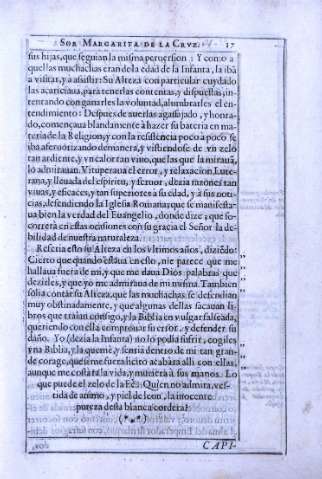 SOR MARGARITA DE LA CRVZ. 17
sus hijas, que seguian la misma peruersion : Y como a
quellas muchachas eran de la edad de la Infanta, la iba
a visitar, y a asistir: Su Alteza con particular cuydado
las acariciaua, para tenerlas contentas, y dispuestas, in-
tentando con ganarles la voluntad, alumbrarles el en-
tendimiento: Despues de auerlas agasajado, y honra-
do, començaua blandamente à hazer su bateria en ma-
teria de la Religion, y con la resistencia poco à poco se
iba aferuorizando de manera, y vistiendose de vn zelo
tan ardiente, y vn calor tan viuo, que las que la mirauã,
lo admirauan. Vituperaua el error, y relaxacion Lute-
rana, y lleuada del espiritu, y feruor, dezia razones tan
viuas, y eficaces, y tan superiores a su edad, y à sus noti-
cias, defendiendo la Iglesia Romana; que se manifesta-
ua bien la verdad del Euangelio, donde dize; que so-
correrà en estas ocasiones con su gracia el Señor la de-
bilidad de nuestra naturaleza.
Referia esto su Alteza en los vltimos años, diziẽdo:
Cierto que quando estaua en esto, me parece que me
hallaua fuera de mi, y que me daua Dios palabras que
dezirles, y que yo me admiraua de mi misma. Tambien
solia contar su Alteza, que las muchachas se defendian
muy obstinadamente, y que algunas dellas sacauan li-
bros que traian consigo, y la Biblia en vulgar falseada,
queriendo con ella comprouar su error, y defender su
daño. Yo (dezia la Infanta) no lo podia sufrir, cogiles
vna Biblia, y la quemè, y sentia dentro de mi tan gran-
de corage, que si me fuera licito acabàra alli con ellas,
aunque me costàra la vida, y muriera à sus manos. Lo
que puede el zelo de la Fè! Quien no admira, ves-
tida de animo, y piel de leon, la inocente
pureza desta blanca cordera?
CAPI-